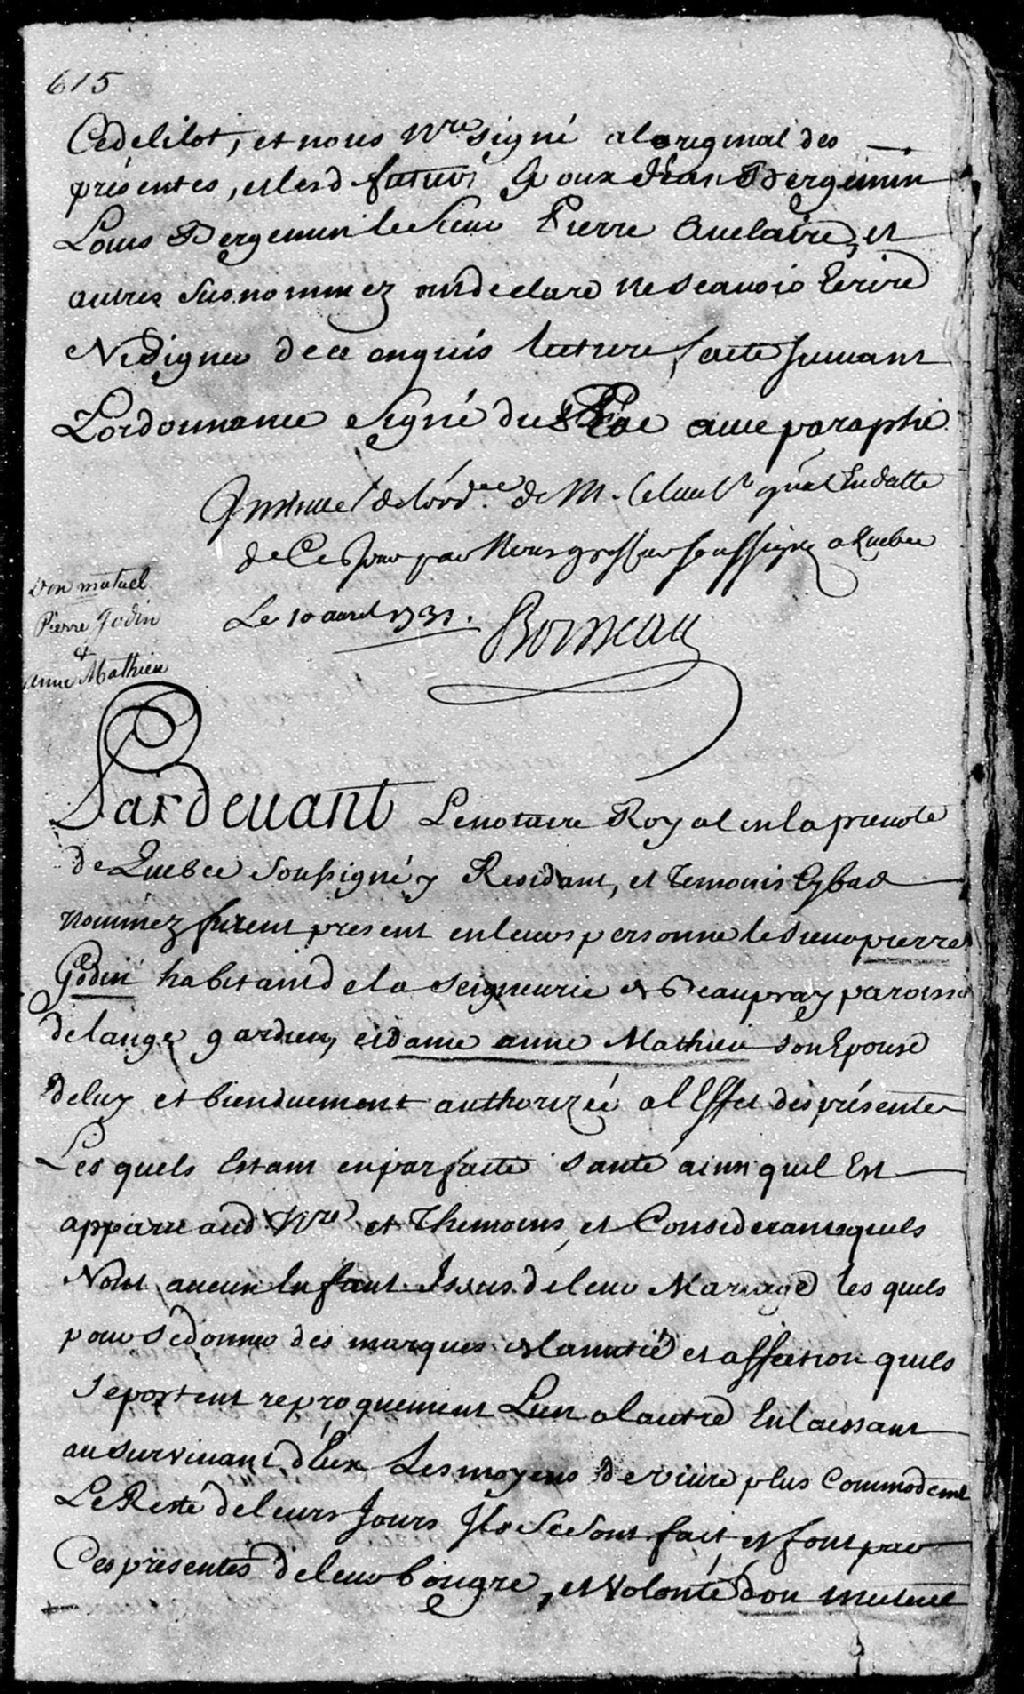 615
Cedelilot, et nous Nre signé aloriginal des
présentes, et lesd futurs Epoux Jean Bergevin
Louis Bergevin le Sieur Pierre Auclaire, et
autres susnommez ont declaré ne scavoir Ecrire
Ne Signer de ce enquis lecture faite suivant
Lordonnance Signé du avec paraphe
Insinué de lord.ce de M. le lieut.t gñal En datte
de Ce Jour par Nous greffier soussigné a Quebec
Le 10 avril 1731.
Boisseau
Don mutuel
Pierre Godin
&
Anne Mathieu
Pardevant Le notaire Royal en la prevoté
de Quebec soussigné y Residant, et temoins Cy bas
nommez furent present en leurs personne le Sieur pierre
Godin habitant de la Seigneurie de Beaupray paroisse
de lange gardien, et dame anne Mathieu son Epouse
de luy et bienduement authorizée a l Effet des présentes
Les quels Estant en parfaite santé ainsi quil Est
apparu aud Nre et Themoins, et Considerant quils
Nont aucun Enfant Issus de leur Mariage les quels
pour se donner des marques de lamitié et affection quils
se portent reproquement Lun a lautre En laissant
au survivant d'Eux Les moyens de vivre plus Commodemt
Le Reste de leurs Jours Ils se sont fait et font par
Ces présentes de leur bon gre, et volonté don mutuel